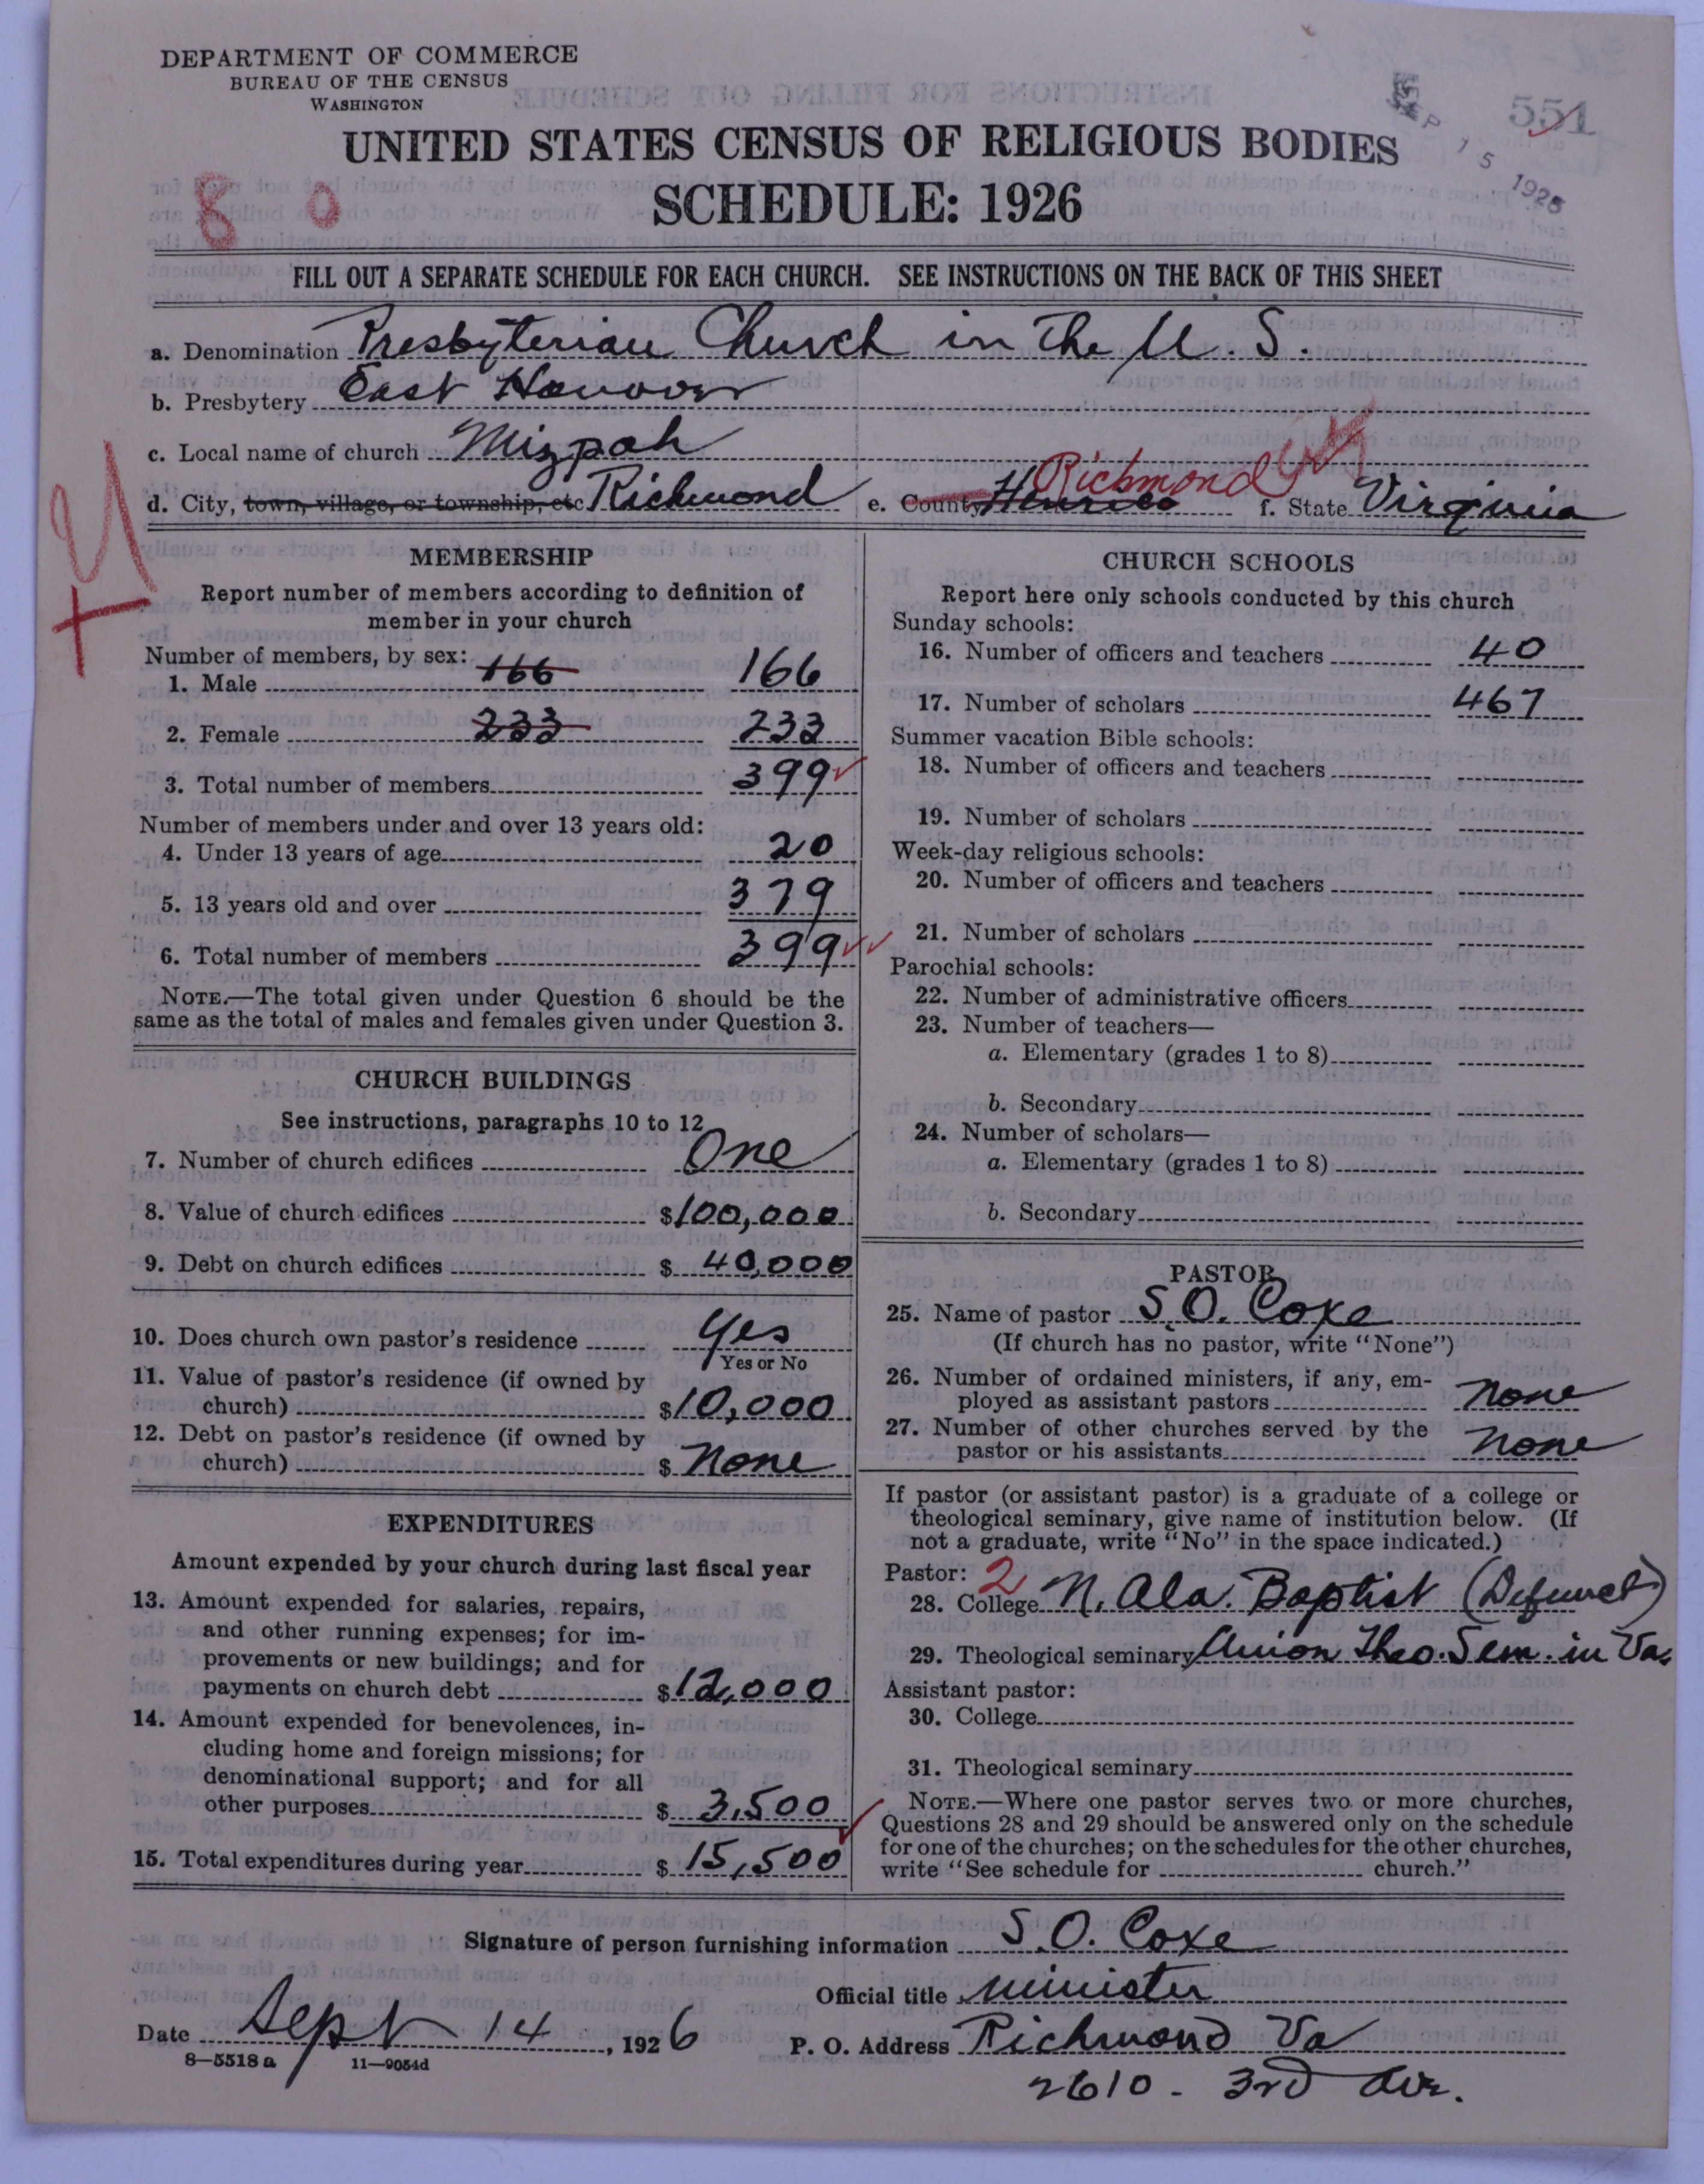 DEPARTMENT OF COMMERCE
BUREAU OF THE CENSUS
WASHINGTON
551
SEP 15 1926
UNITED STATES CENSUS OF RELIGIOUS BODIES
SCHEDULE: 1926
8 0
FILL OUT A SEPARATE SCHEDULE FOR EACH CHURCH. SEE INSTRUCTIONS ON THE BACK OF THIS SHEET
a. Denomination Presbyterian Church in The U. S.
b. Presbytery East Hanover
c. Local name of church Mizpah
d. City, town, village, or township, etc. Richmond e. County Henrico Richmond f. State Virginia
MEMBERSHIP
Report number of members according to definition of
member in your church
Number of members, by sex:
1. Male 166 166
2. Female 233 233
3. Total number of members 399
Number of members under and over 13 years old:
4. Under 13 years of age 20
5. 13 years old and over 379
6. Total number of members 399
NOTE.—The total given under Question 6 should be the
same as the total of males and females given under Question 3.
CHURCH BUILDINGS
See instructions, paragraphs 10 to 12
7. Number of church edifices One
8. Value of church edifices $100,000
9. Debt on church edifices $ 40,000
10. Does church own pastor's residence Yes
Yes or No
11. Value of pastor's residence (if owned by
church) $10,000
12. Debt on pastor's residence (if owned by
church) $ None
EXPENDITURES
Amount expended by your church during last fiscal year
13. Amount expended for salaries, repairs,
and other running expenses; for im-
provements or new buildings; and for
payments on church debt $12,000
14. Amount expended for benevolences, in-
cluding home and foreign missions; for
denominational support; and for all
other purposes $ 3,500
15. Total expenditures during year $ 15,500
CHURCH SCHOOLS
Report here only schools conducted by this church
Sunday schools:
16. Number of officers and teachers 40
17. Number of scholars 467
Summer vacation Bible schools:
18. Number of officers and teachers
19. Number of scholars
Week-day religious schools:
20. Number of officers and teachers
21. Number of scholars
Parochial schools:
22. Number of administrative officers
23. Number of teachers—
a. Elementary (grades 1 to 8)
b. Secondary
24. Number of scholars—
a. Elementary (grades 1 to 8)
b. Secondary
PASTOR
25. Name of pastor S.O. Coxe
(If church has no pastor, write "None")
26. Number of ordained ministers, if any, em-
ployed as assistant pastors None
27. Number of other churches served by the
pastor or his assistants None
If pastor (or assistant pastor) is a graduate of a college or
theological seminary, give name of institution below. (If
not a graduate, write "No" in the space indicated.)
Pastor: 2
28. College N. Ala. Baptist (Defunct)
29. Theological seminary Union Theo. Sem. in Va.
Assistant pastor:
30. College
31. Theological seminary
NOTE.—Where one pastor serves two or more churches,
Questions 28 and 29 should be answered only on the schedule
for one of the churches; on the schedules for the other churches,
write "See schedule for church."
Signature of person furnishing information S.O. Coxe
Official title Minister
Date Sept 14, 1926 P. O. Address Richmond Va
8—5518a 11—9054d
2610 - 3rd Ave.